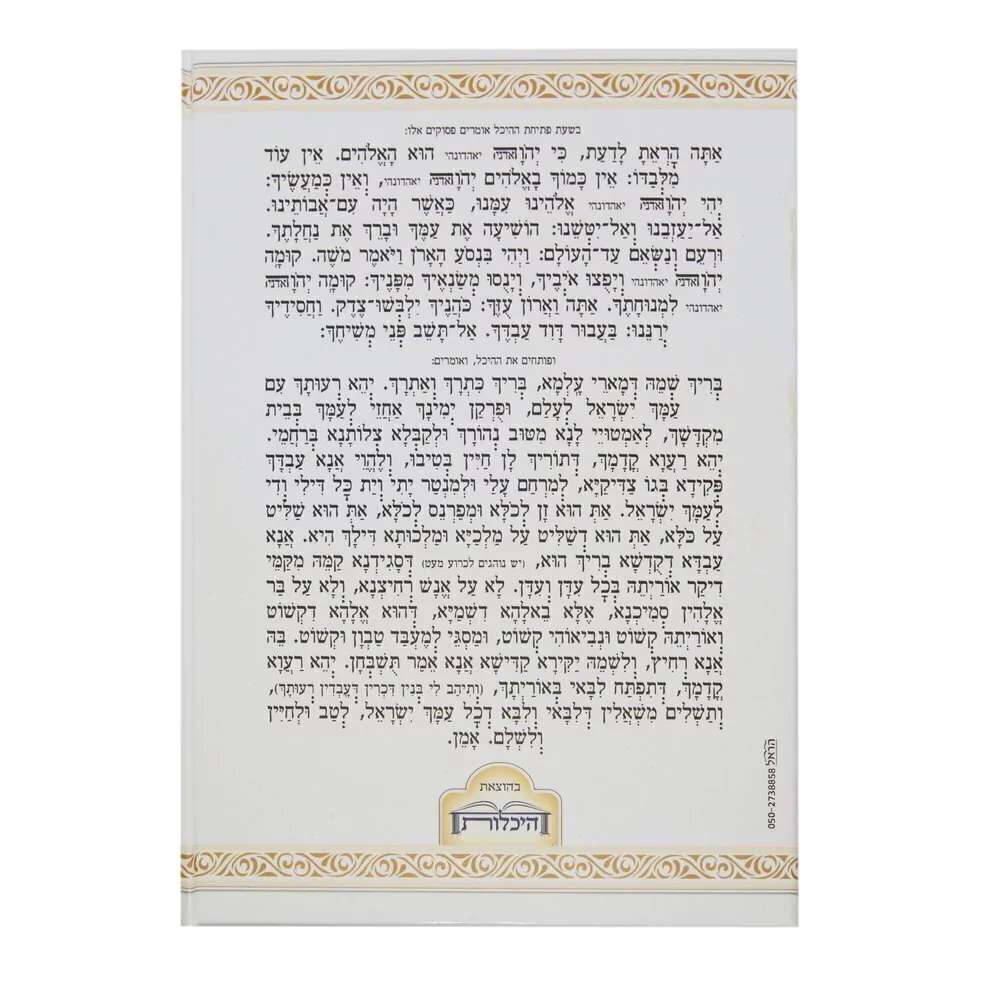 בשעת פתיחת ההיכל אומרים פסוקים אלו:
אַתָּה הָרְאֵתָ לָדַעַת, כִּי יְהֹוָה יאהדונהי הוּא הָאֱלֹהִים. אֵין עוֹד
מִלְּבַדּוֹ: אֵין כָּמוֹךָ בָאֱלֹהִים יְהֹוָה יאהדונהי, וְאֵין כְּמַעֲשֶׂיךָ:
יְהִי יְהֹוָה יאהדונהי אֱלֹהֵינוּ עִמָּנוּ, כַּאֲשֶׁר הָיָה עִם־אֲבוֹתֵינוּ.
אַל־יַעַזְבֵנוּ וְאַל־יִטְּשֵׁנוּ: הוֹשִׁיעָה אֶת עַמֶּךָ וּבָרֵךְ אֶת נַחֲלָתֶךָ.
וּרְעֵם וְנַשְּׂאֵם עַד־הָעוֹלָם: וַיְהִי בִּנְסֹעַ הָאָרֹן וַיֹּאמֶר מֹשֶׁה. קוּמָה
יְהֹוָה יאהדונהי וְיָפֻצוּ אֹיְבֶיךָ, וְיָנֻסוּ מְשַׂנְאֶיךָ מִפָּנֶיךָ: קוּמָה יְהֹוָה
יאהדונהי לִמְנוּחָתֶךָ. אַתָּה וַאֲרוֹן עֻזֶּךָ: כֹּהֲנֶיךָ יִלְבְּשׁוּ־צֶדֶק. וַחֲסִידֶיךָ
יְרַנֵּנוּ: בַּעֲבוּר דָּוִד עַבְדֶּךָ. אַל־תָּשֵׁב פְּנֵי מְשִׁיחֶךָ:
ופותחים את ההיכל, ואומרים:
בְּרִיךְ שְׁמֵהּ דְּמָארֵי עָלְמָא, בְּרִיךְ כִּתְרָךְ וְאַתְרָךְ. יְהֵא רְעוּתָךְ עִם
עַמָּךְ יִשְׂרָאֵל לְעָלַם, וּפֻרְקַן יְמִינָךְ אַחֲזֵי לְעַמָּךְ בְּבֵית
מִקְדָּשָׁךְ, לְאַמְטוּיֵי לָנָא מִטּוּב נְהוֹרָךְ וּלְקַבְּלָא צְלוֹתָנָא בְּרַחֲמֵי.
יְהֵא רַעֲוָא קֳדָמָךְ, דְּתוֹרִיךְ לָן חַיִּין בְּטִיבוּ, וְלֶהֱוֵי אֲנָא עַבְדָּךְ
פְּקִידָא בְּגוֹ צַדִּיקַיָּא, לְמִרְחַם עָלַי וּלְמִנְטַר יָתִי וְיַת כָּל דִּילִי וְדִי
לְעַמָּךְ יִשְׂרָאֵל. אַנְתְּ הוּא זָן לְכֹלָּא וּמְפַרְנֵס לְכֹלָּא, אַנְתְּ הוּא שַׁלִּיט
עַל כֹּלָּא, אַנְתְּ הוּא דְּשַׁלִּיט עַל מַלְכַיָּא וּמַלְכוּתָא דִּילָךְ הִיא. אֲנָא
עַבְדָּא דְּקֻדְשָׁא בְּרִיךְ הוּא, (יש נוהגים לכרוע מעט) דְּסָגִידְנָא קַמֵּהּ מִקַּמֵּי
דִּיקַר אוֹרַיְתֵהּ בְּכָל עִדָּן וְעִדָּן. לָא עַל אֱנָשׁ רָחִיצְנָא, וְלָא עַל בַּר
אֱלָהִין סָמִיכְנָא, אֶלָּא בֵּאלָהָא דִּשְׁמַיָּא, דְּהוּא אֱלָהָא דִקְשׁוֹט
וְאוֹרַיְתֵהּ קְשׁוֹט וּנְבִיאוֹהִי קְשׁוֹט, וּמַסְגֵּי לְמֶעְבַּד טַבְוָן וּקְשׁוֹט. בֵּהּ
אֲנָא רָחִיץ, וְלִשְׁמֵהּ יַקִּירָא קַדִּישָׁא אֲנָא אֵמַר תֻּשְׁבְּחָן. יְהֵא רַעֲוָא
קֳדָמָךְ, דְּתִפְתַּח לִבָּאי בְּאוֹרַיְתָךְ, (וְתֵיהַב לִי בְּנִין דִּכְרִין דְּעָבְדִין רְעוּתָךְ),
וְתַשְׁלִים מִשְׁאֲלִין דְּלִבָּאי וְלִבָּא דְכָל עַמָּךְ יִשְׂרָאֵל, לְטַב וּלְחַיִּין
וְלִשְׁלָם. אָמֵן.
בהוצאת
היכלות
הראל 050-2738858